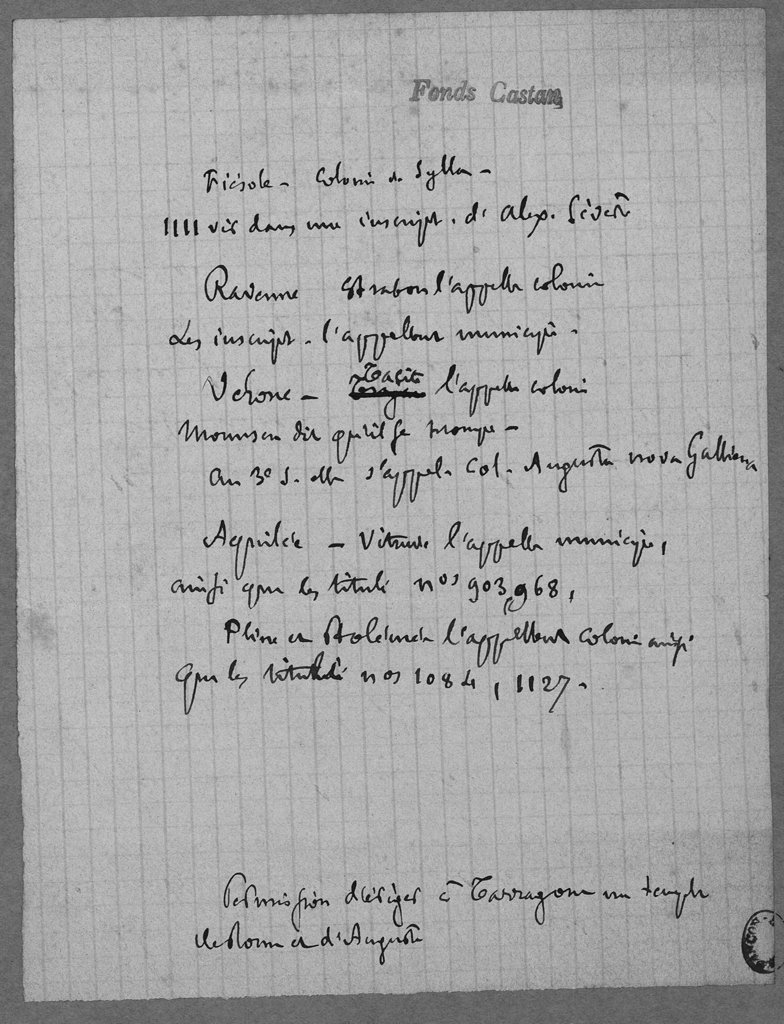 Fonds Castan
Fiésole - Colonie de Sylla -
IIII vir dans une inscript. d'Alex. Sévère
Ravenne Strabon l'appelle colonie
Les inscript. l'appellent municipe.
Vérone - Tacite l'appelle colonie
Mommsen dit qu'il se trompe -
Au 3e s. elle s'appele Col. Augusta nova Galliena
Aquilée - Vitruve l'appelle municipe,
ainsi que les tituli nos 903, 968,
Pline et Ptolémée l'appellent colonie ainsi
que les tituli nos 1084, 1127.
Permission d'ériger à Tarragone un temple
de Rome et d'Auguste